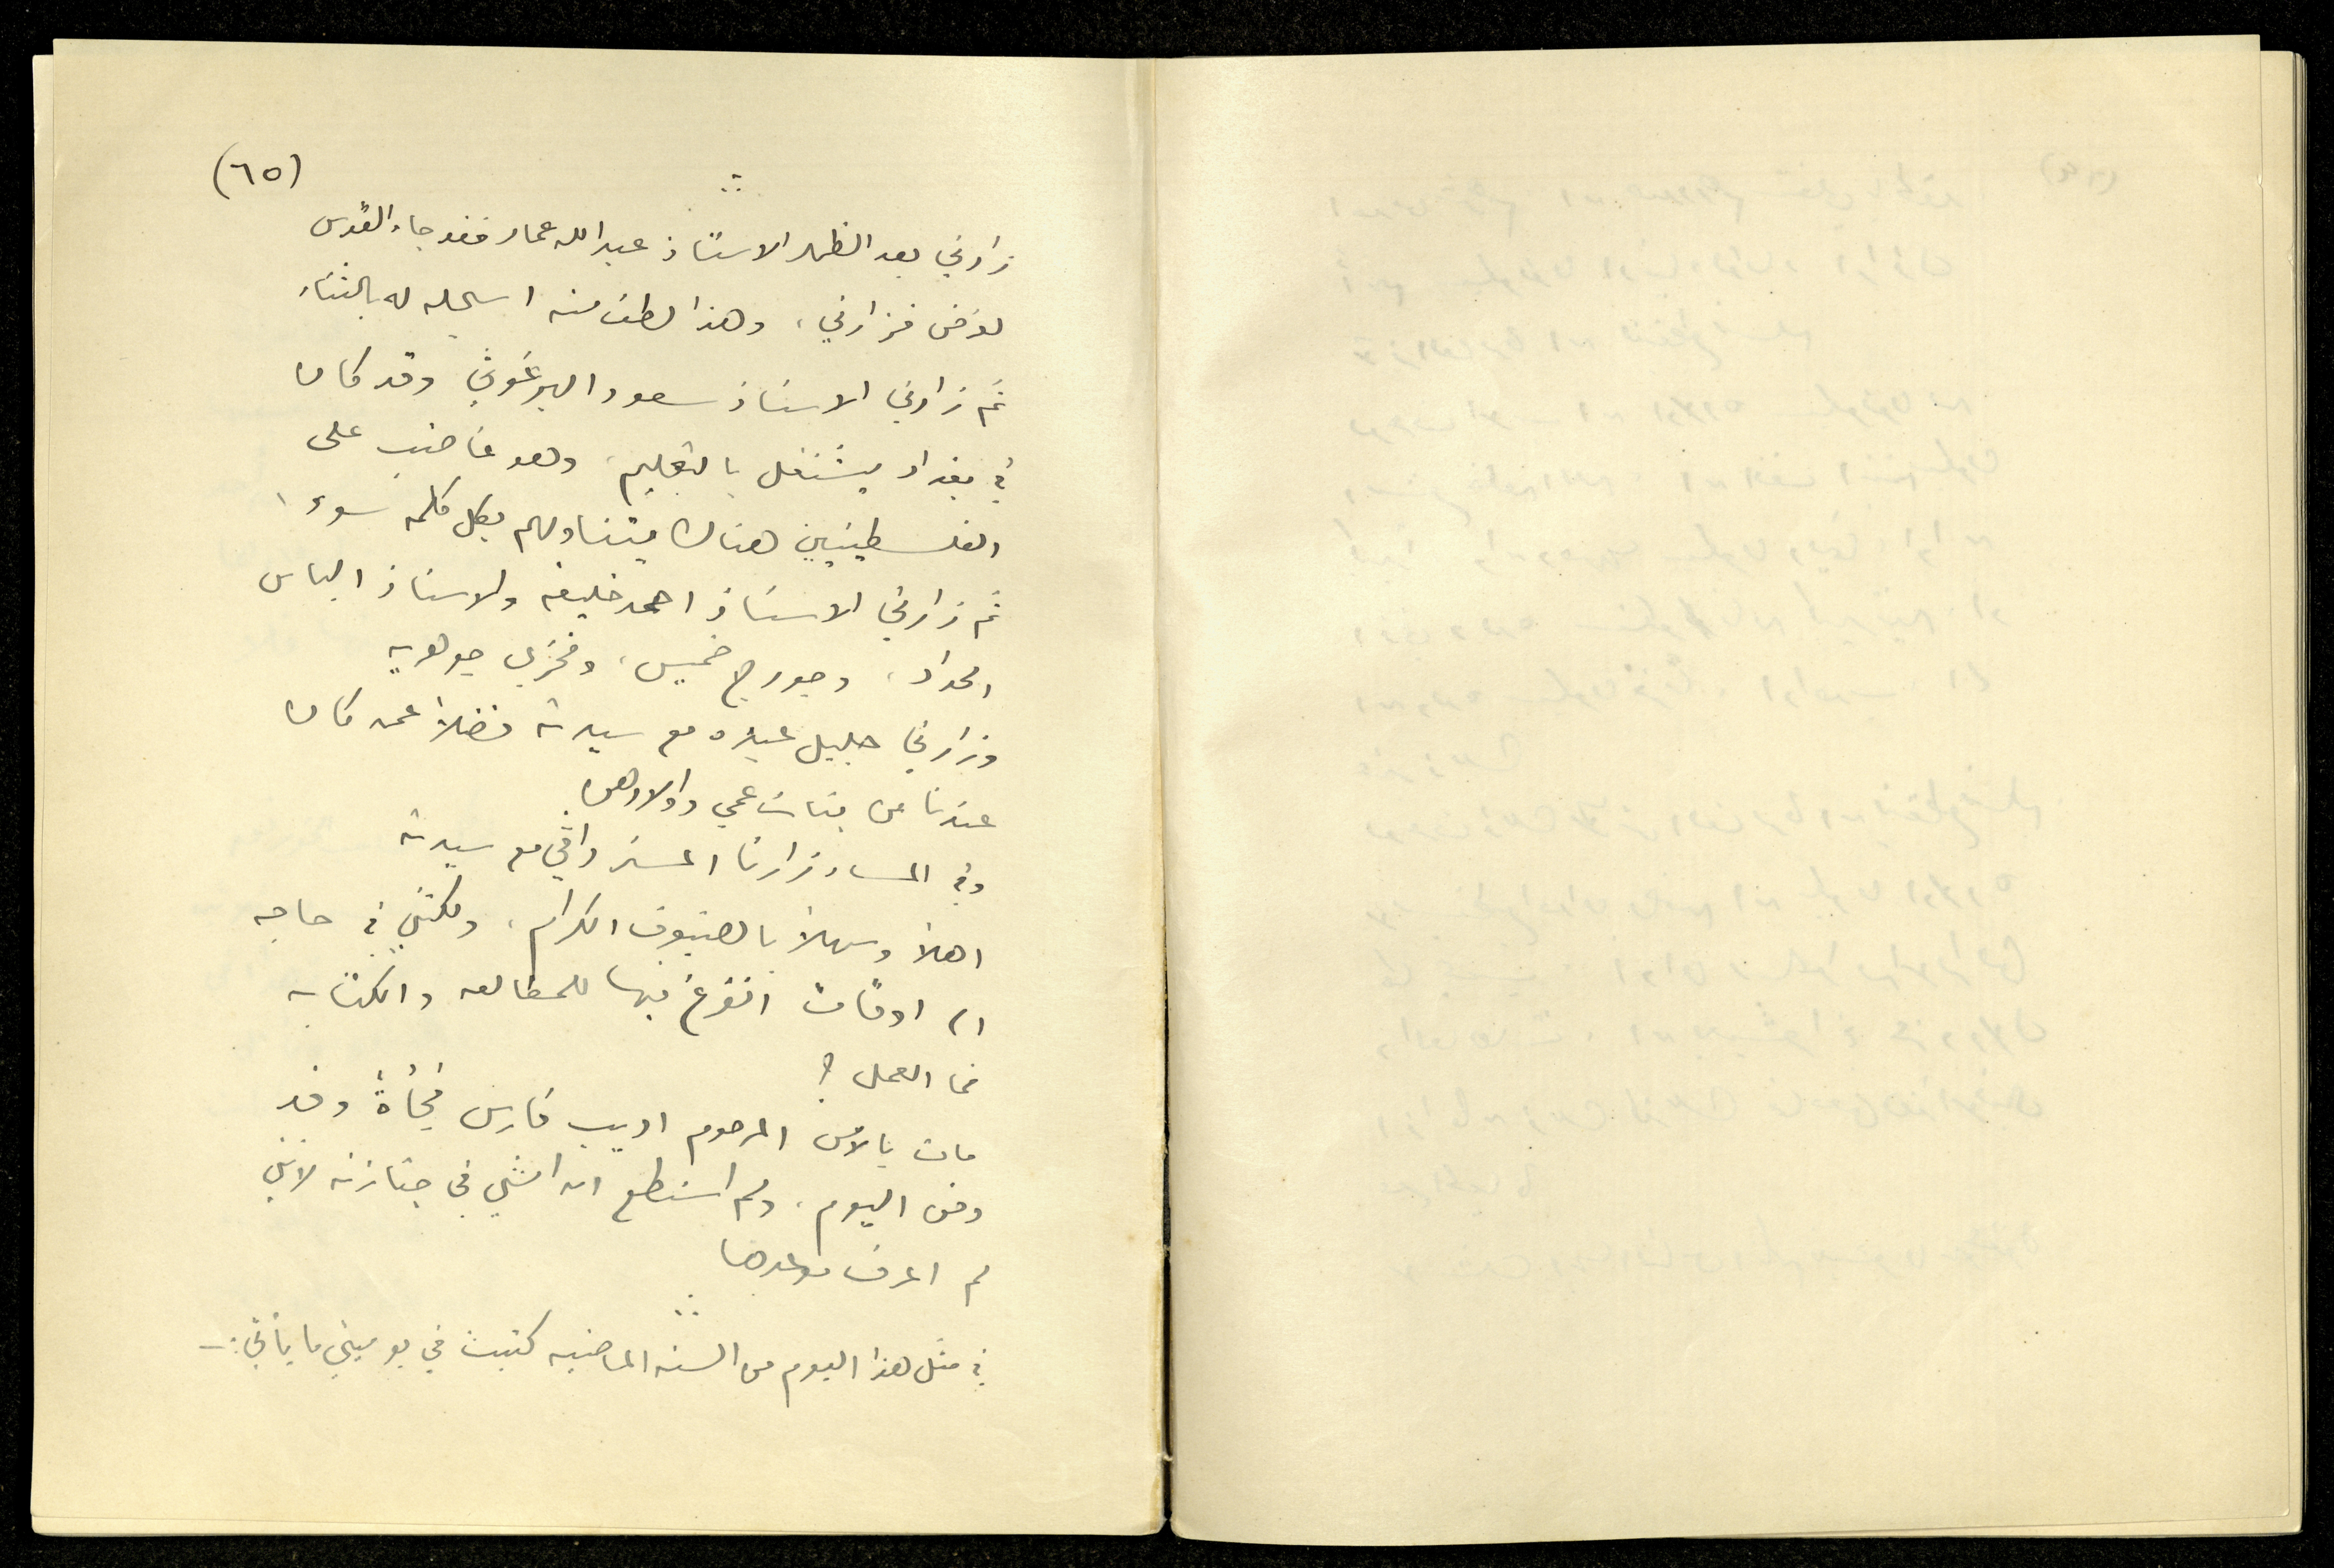 (٦٥)
زارني بعد الظهر الاستاذ عبدالله عمار فقد جاء القدس
لغرض فزارني، وهذا لطف منه اسجله له بالثناء
ثم زارني الاستاذ سعود البرغوثي وقد كان
في بغداد يشتغل بالتعليم، وهو غاضب على
الفلسطينيين هناك يتناولهم بكل كلمه سوء ا
ثم زارني الاستاذ احمد خليفه والاستاذ الياس
الحداد، وجورج خميس، وفخري جوهريه
وزارني جليل عبده مع سيدته فضلاً عمن كان
عندنا من بنات عمي واولادهن
وفي المساء زارنا المستر مع سيدته
اهلاً وسهلاً بالضيوف الكرام، ولكنني في حاجه
الى اوقات اتفرغ فيها للمطالعه والكتابه
فما العمل؟
مات بالامس المرحوم اديب فارس فجأةً وقد
دفن اليوم، ولم استطع ان امشي في جنازته لانني
لم اعرف موعدها
في مثل هذا اليوم من السنه الماضيه كتبت في يوميتي ما يأتي:-